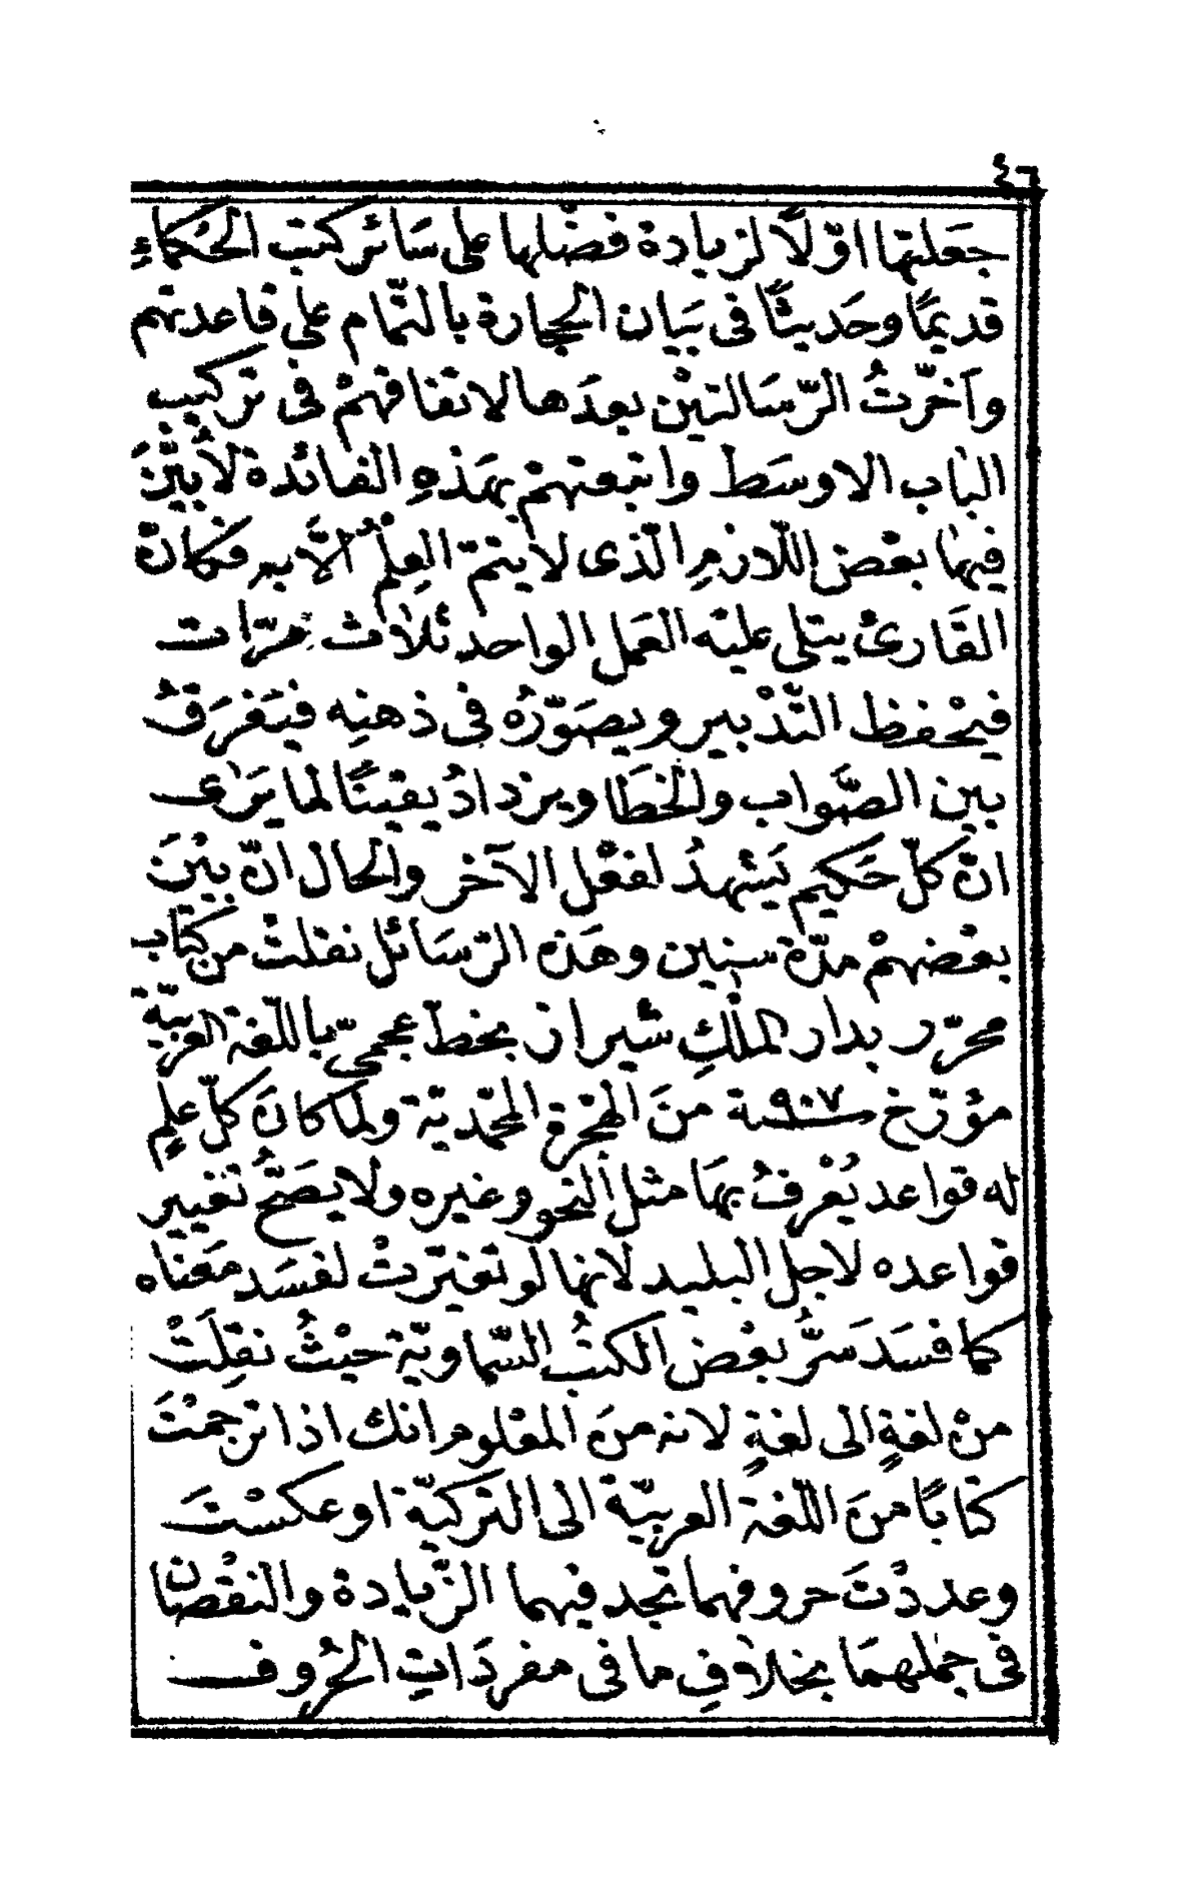 ٤٦
جعَلتها اوّلًا لزيادة فضْلها على سَائر كتب الحُكماءِ
قديمًا وحَديثًا فى بَيان الحجارة بالتّمام على قاعدتهم
وآخّرتُ الرّسَالتيْن بعدَها لاتفاقهمْ فى تركيب
الباب الاوسَط واتبعتهمْ بهَذهِ الفائدة لأبيّنَ
فيهَا بعْض اللّازم الّذى لا يتمّ العِلْمُ الّا به فكانّ
القَارئ يتلى عليْه العَمل الواحد ثلاث مرّات
فيحْفظ التّدْبير ويصَوّرُه فى ذهنِه فيَفرَقُ
بين الصَّواب والخطَا ويزدادُ يقينًا لما يَرَى
انّ كلّ حَكيم يَشهدُ لفعْل الآخر والحال انّ بيْنَ
بعْضهمْ مدّة سنين وهَذه الرّسَائل نقلتْ من كتاب
محرّر بدار الملْكِ شيراز بخطّ عجمىّ باللّغة العربيّة
مؤرّخ سنة ٩٠٧ منَ الهجْرة المحمّدية ولما كانَ كلّ علم
له قواعد يُعْرفُ بهَا مثل النحو وغيره ولا يصَحُّ تغيير
قواعده لاجل البليد لانها لو تغيّرتْ لفسَد مَعناه
كما فسَدَ سَرُّ بعْض الكتُب السّماويّة حيْثُ نقلَتْ
منْ لغةٍ الى لغةٍ لانه منَ المعْلوم انك اذا ترجمْتَ
كتابًا منَ اللّغة العربيّة الى التركيّة او عكسْتَ
وعددْتَ حروفهما تجد فيهما الزّيادة والنقْصان
فى جملهمَا بخلاف ما فى مفردَاتِ الحُرُوف